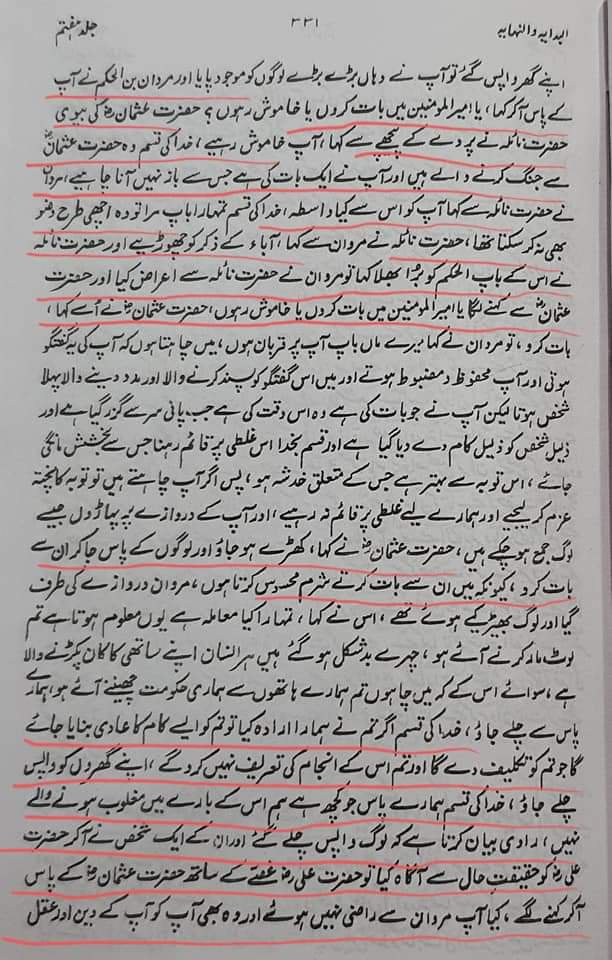 البدایہ والنہایہ ۳۳۱ جلد ہفتم
اپنے گھر واپس گئے تو آپ نے وہاں بڑے بڑے لوگوں کو موجود پایا اور مردان بن الحکم نے آپ
کے پاس آکر کہا، یا امیر المومنین میں بات کروں یا خاموش رہوں؟ حضرت عثمانؓ کی بیوی
حضرت نائلہ نے پردے کے پیچھے سے کہا، آپ خاموش رہیے، خدا کی قسم وہ حضرت عثمانؓ
سے جنگ کرنے والے ہیں اور آپ نے ایک بات کی ہے جس سے باز نہیں آنا چاہیے، مروان
نے حضرت نائلہ سے کہا آپ کو اس سے کیا واسطہ، خدا کی قسم تمہارا باپ مرا تو وہ اچھی طرح وضو
بھی نہ کر سکتا تھا، حضرت نائلہ نے مروان سے کہا، آباء کے ذکر کو چھوڑیے اور حضرت نائلہ
نے اس کے باپ الحکم کو بُرا بھلا کہا تو مروان نے حضرت نائلہ سے اعراض کیا اور حضرت
عثمانؓ سے کہنے لگا یا امیر المومنین میں بات کروں یا خاموش رہوں، حضرت عثمانؓ نے اُسے کہا،
بات کرو، تو مروان نے کہا میرے ماں باپ آپ پر قربان ہوں، میں چاہتا ہوں کہ آپ کی یہ گفتگو
ہوتی اور آپ محفوظ و مضبوط ہوتے اور میں اس گفتگو کو پسند کرنے والا اور مدد دینے والا پہلا
شخص ہوتا لیکن آپ نے جو بات کی ہے وہ اس وقت کی ہے جب پانی سر سے گزر گیا ہے اور
ذلیل شخص کو ذلیل کام دے دیا گیا ہے اور قسم بخدا اس غلطی پر قائم رہنا جس سے بخشش مانگی
جائے، اس توبہ سے بہتر ہے جس کے متعلق خدشہ ہو، پس اگر آپ چاہتے ہیں تو توبہ کا پختہ
عزم کر لیجیے اور ہمارے لیے غلطی پر قائم نہ رہیے، اور آپ کے دروازے پر پہاڑوں جیسے
لوگ جمع ہو چکے ہیں، حضرت عثمانؓ نے کہا، کھڑے ہو جاؤ اور لوگوں کے پاس جا کر ان سے
بات کرو، کیونکہ میں ان سے بات کرتے شرم محسوس کرتا ہوں، مروان دروازے کی طرف
گیا اور لوگ بھیڑ کیے ہوئے تھے، اس نے کہا، تمہارا کیا معاملہ ہے یوں معلوم ہوتا ہے تم
لوٹ مار کرنے آئے ہو، چہرے بدشکل ہو گئے ہیں ہر انسان اپنے ساتھی کا کان پکڑنے والا
ہے، سوائے اس کے کہ میں چاہوں تم ہمارے ہاتھوں سے ہماری حکومت چھیننے آئے ہو، ہمارے
پاس سے چلے جاؤ، خدا کی قسم اگر تم نے ہمارا ارادہ کیا تو تم کو ایسے کام کا عادی بنایا جائے
گا جو تم کو تکلیف دے گا اور تم اس کے انجام کی تعریف نہیں کرو گے، اپنے گھروں کو واپس
چلے جاؤ، خدا کی قسم ہمارے پاس جو کچھ ہے ہم اس کے بارے میں مغلوب ہونے والے
نہیں، راوی بیان کرتا ہے کہ لوگ واپس چلے گئے اور ان کے ایک شخص نے آکر حضرت
علیؓ کو حقیقتِ حال سے آگاہ کیا تو حضرت علیؓ غصّے کے ساتھ حضرت عثمانؓ کے پاس
آکر کہنے لگے، کیا آپ مروان سے راضی نہیں ہوئے اور وہ بھی آپ کو آپ کے دین اور عقل